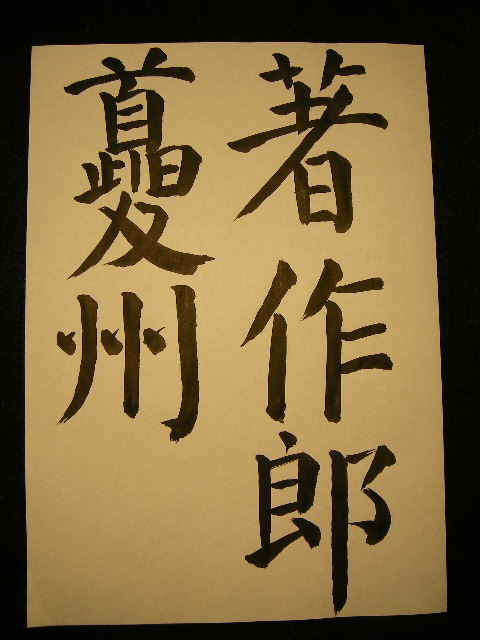 著作郎
夔州